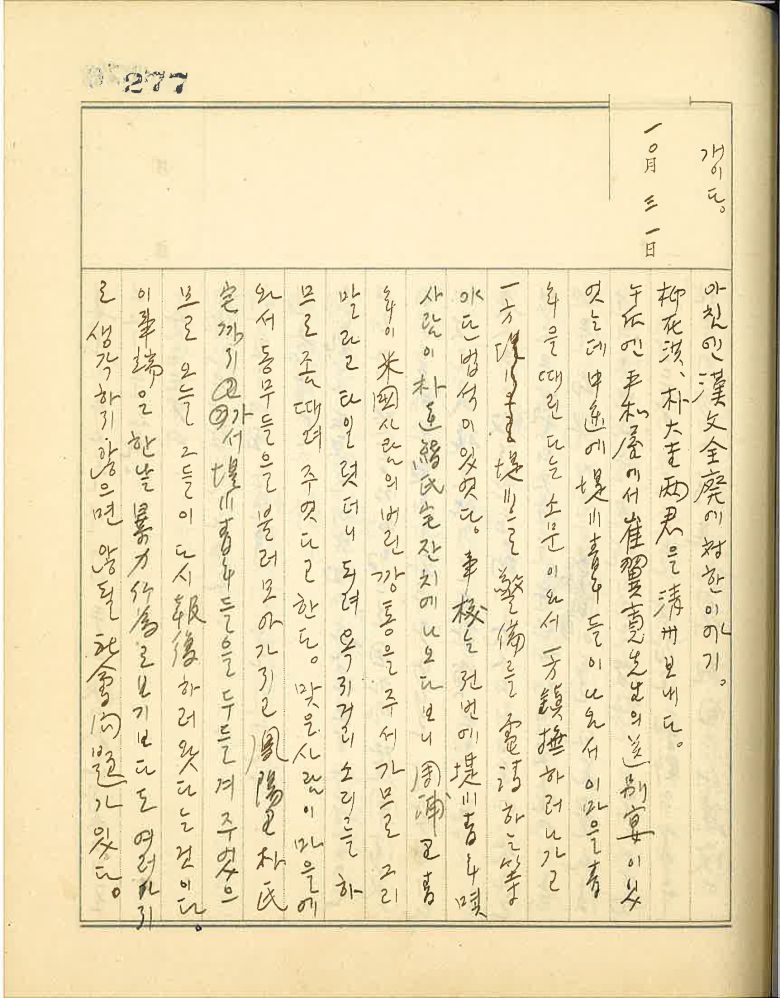 277
개이다.
一○月 三一日
아침엔 漢文全廢에 対한 이야기.
柳在洪、朴大圭 両君을 淸州 보내다.
午后엔 平和屋에서 崔翼 先生의 送別宴이 있
엇는데 中途에 堤川青年들이 나와서 이 마을 青
年을 때린다는 소문이 와서 一方 鎭撫하러 나가고
一方 堤川로 警備를 電請하는 等
야단법석이 있엇다. 事 는 전번에 堤川青年 몇
사람이 朴 氏宅 잔치에 나오다 보니 周浦里 青
年이 米國사람의 버린 깡통을 주서가므로 그리
말라고 타일럿더니 도려 욕지거리 소리를 하
므로 좀 때려 주엇다고 한다. 맞은 사람이 마을에
와서 동무들을 불러 모아가지고 鳳陽里 朴氏
宅까지 가서 堤川青年들을 두들겨 주엇으
므로 오늘 그들이 다시 報復하러 왓다는 것이다.
이 事端을 한낱 暴力行為로 보기보다도 여러가지
로 생각하지 않으면 않될 社會問題가 있다.